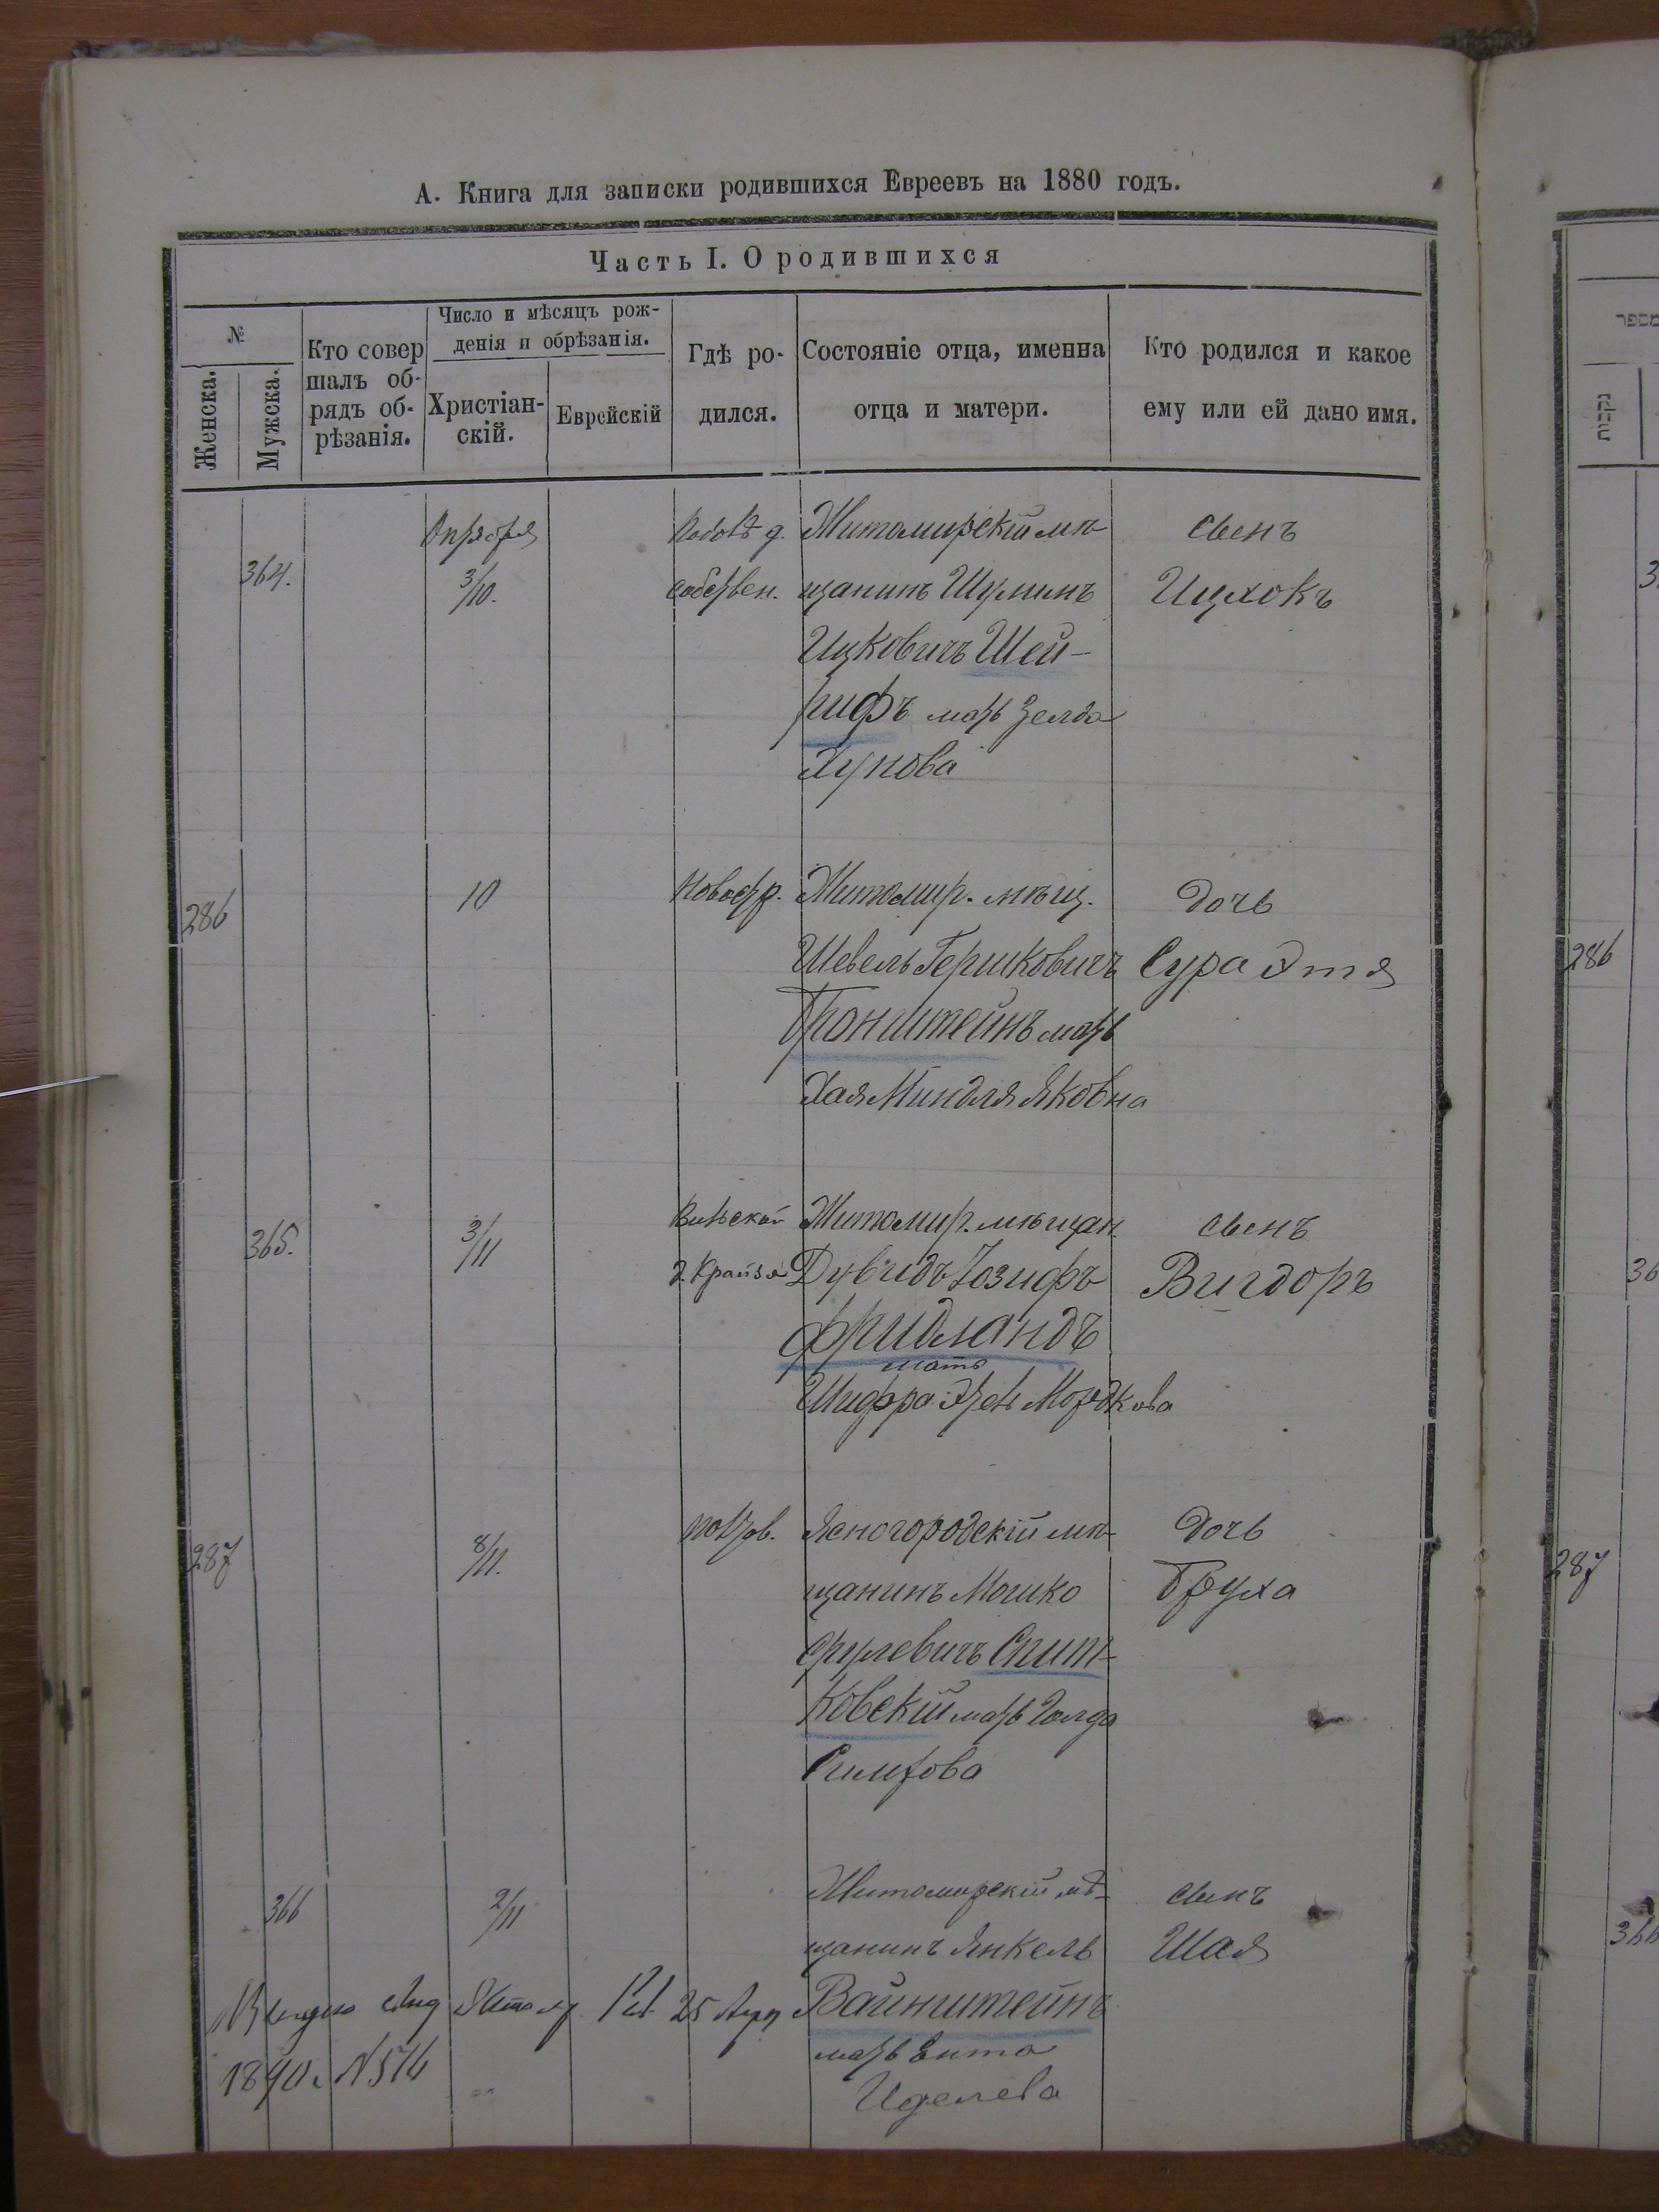 А. Книга для записки родившихся Евреевъ на 1880 годъ.
Часть I. О родившихся
№
Женска.
Мужска.
Кто совер
шалъ об-
рядъ об-
рѣзанія.
Число и мѣсяцъ рож-
денія и обрѣзанія.
Христіан-
скій.
Еврейскій
Гдѣ ро-
дился.
Состояніе отца, именна
отца и матери.
Кто родился и какое
ему или ей дано имя.
364.
3/10.
Житомирскій мѣ-
щанинъ Шулимъ
Ицковичъ Шей-
рифъ мать Зелда
сынъ
Ицхокъ
286
10
Житомир. мѣщ.
Шевель Гершковичъ
Бронштейнъ мать
Хая Миндля Яковна
дочь
Сура Этя
365.
3/11
д. Крайза
Житомир. мѣщан.
Дувидъ Іозифъ
Фридландъ
мать
Шифра Мордкова
сынъ
Вигдоръ
287
8/11.
Ясногородскій мѣ-
щанинъ Мошко
Срулевичъ Спит-
ковскій мать Голда
дочь
Бруха
366
2/11
Житомирскій мѣ-
щанинъ Янкель
Вайнштейнъ
мать Ента
Иделева
сынъ
Шая
25
1890 г. N 516
מספר
נקבות
286
287
366